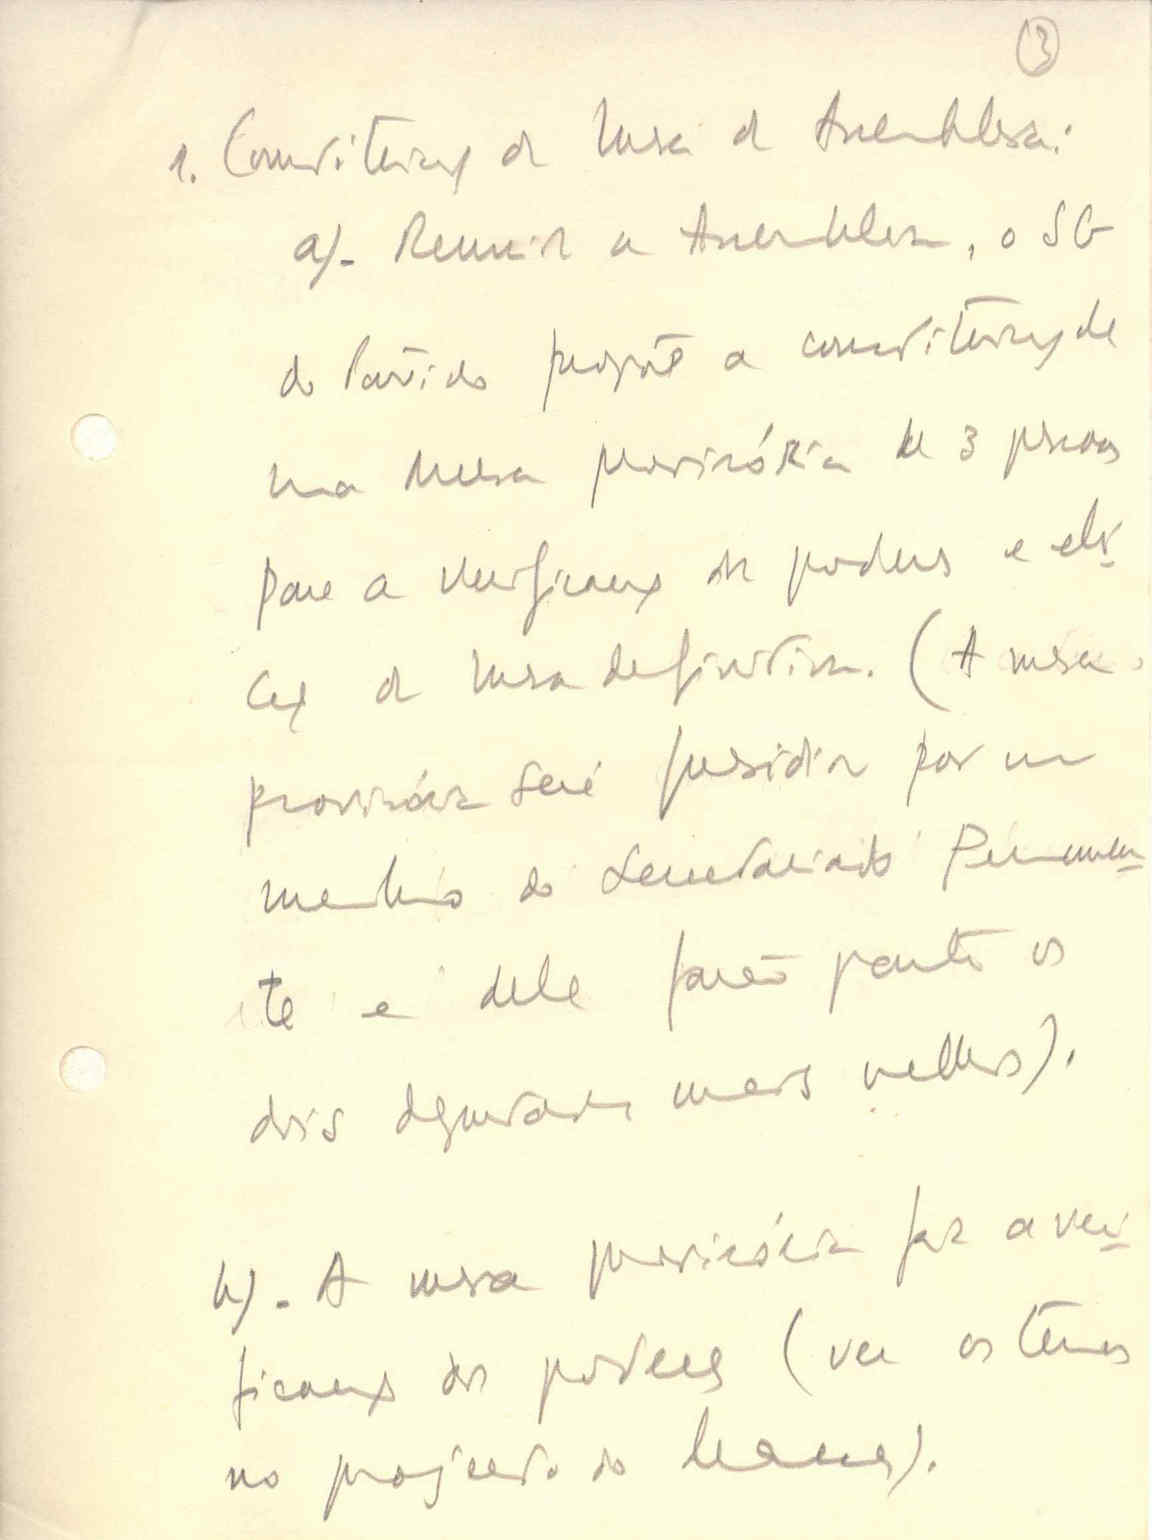 3
1. Constituição da Mesa da Assembleia:
a)- Reunida a Assembleia, o SG
do Partido propõe a constituição de
uma Mesa provisória de 3 pessoas
para a verificação dos poderes e elei-
ção da Mesa definitiva. (A mesa
provisória será presidida por um
membro do Secretariado Permanen-
te e dela farão parte os
dois deputados mais velhos).
b)- A mesa provisória faz a veri-
ficação dos poderes (ver os termos
no projecto do